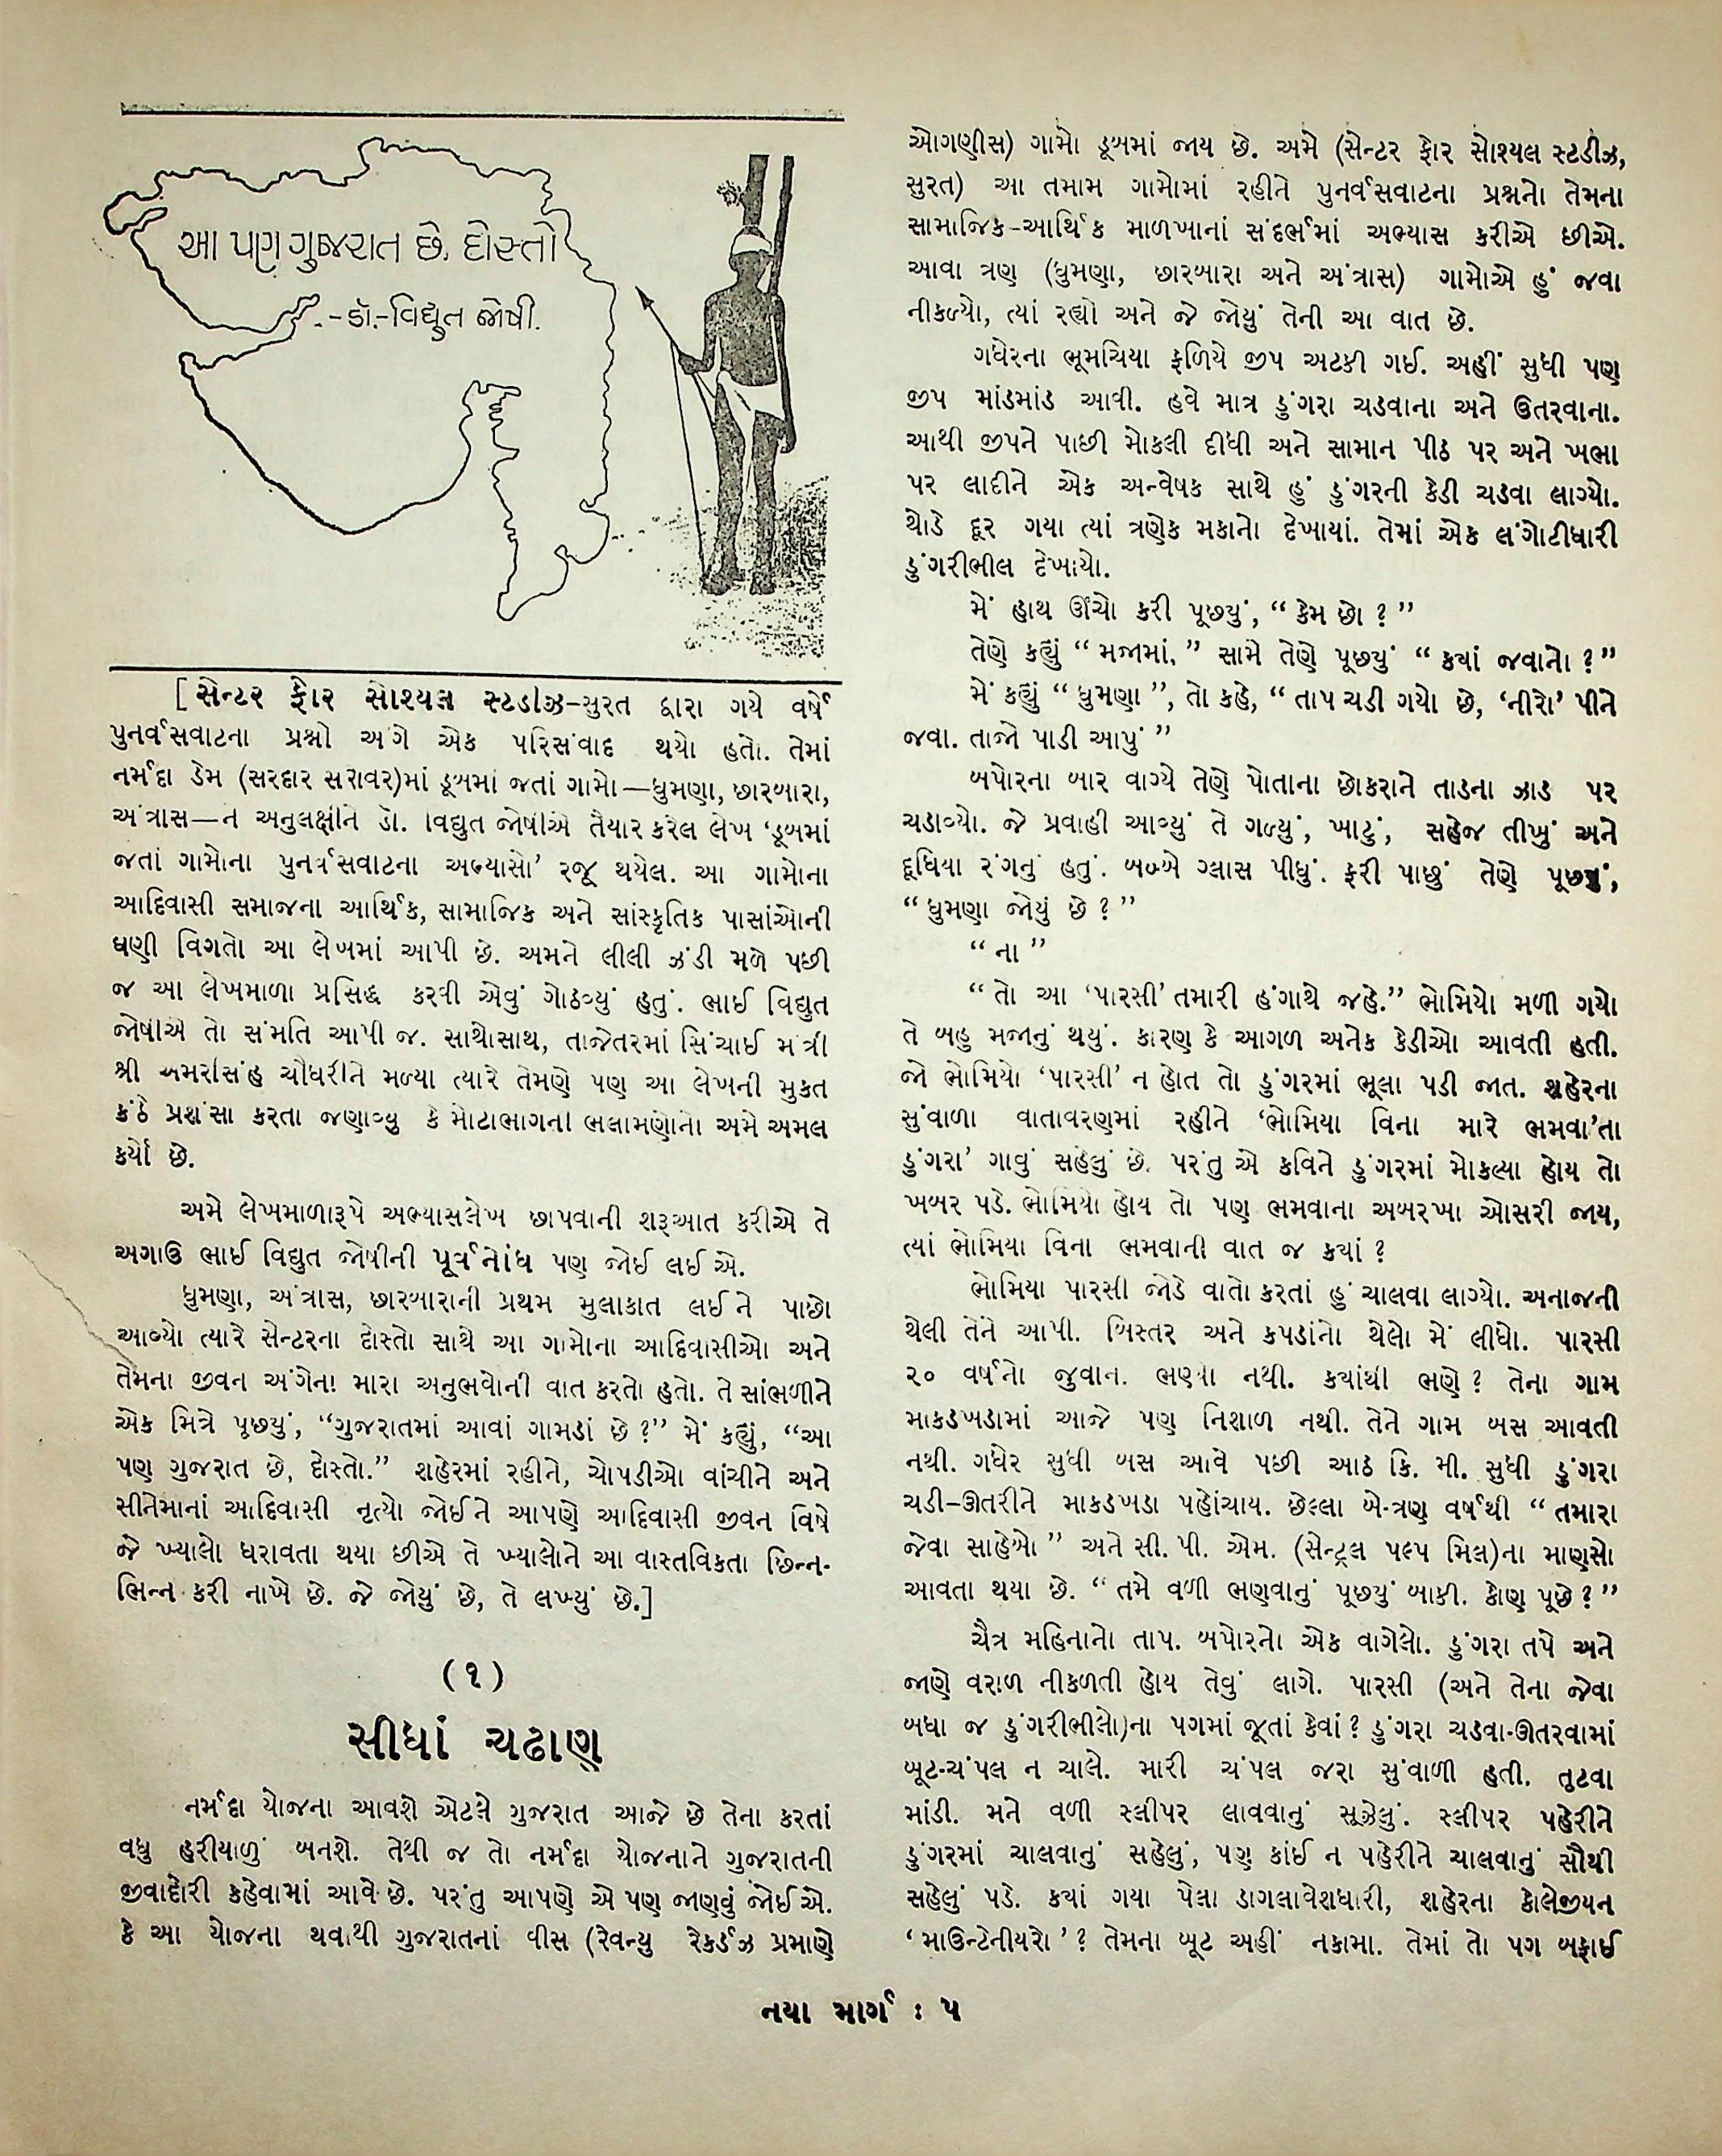 આ પણ ગુજરાત છે, દોસ્તો
-ડૉ.-વિદ્યુત જોષી.
[ સેન્ટર ફોર સોશ્યલ સ્ટડીઝ-સુરત દ્વારા ગયે વર્ષે
પુનર્વસવાટના પ્રશ્નો અંગે એક પરિસંવાદ થયો હતો. તેમાં
નર્મદા ડેમ (સરદાર સરોવર)માં ડૂબમાં જતાં ગામો—ધુમણા, છારબારા,
અંત્રાસ—ને અનુલક્ષીને ડૉ. વિદ્યુત જોષીએ તૈયાર કરેલ લેખ ‘ડૂબમાં
જતાં ગામોના પુનર્વસવાટના અભ્યાસો’ રજૂ થયેલ. આ ગામોના
આદિવાસી સમાજના આર્થિક, સામાજિક અને સાંસ્કૃતિક પાસાંઓની
ઘણી વિગતો આ લેખમાં આપી છે. અમને લીલી ઝંડી મળે પછી
જ આ લેખમાળા પ્રસિદ્ધ કરવી એવું ગોઠવ્યું હતું. ભાઈ વિદ્યુત
જોષીએ તો સંમતિ આપી જ. સાથોસાથ, તાજેતરમાં સિંચાઈ મંત્રી
શ્રી અમરસિંહ ચૌધરીને મળ્યા ત્યારે તેમણે પણ આ લેખની મુક્ત
કંઠે પ્રશંસા કરતા જણાવ્યુ કે મોટાભાગની ભલામણોનો અમે અમલ
કર્યો છે.
અમે લેખમાળારૂપે અભ્યાસલેખ છાપવાની શરૂઆત કરીએ તે
અગાઉ ભાઈ વિદ્યુત જોષીની પૂર્વનોંધ પણ જોઈ લઈએ.
ધુમણા, અંત્રાસ, છારબારાની પ્રથમ મુલાકાત લઈને પાછો
આવ્યો ત્યારે સેન્ટરના દોસ્તો સાથે આ ગામોના આદિવાસીઓ અને
તેમના જીવન અંગેના મારા અનુભવોની વાત કરતો હતો. તે સાંભળીને
એક મિત્રે પૂછયું, “ગુજરાતમાં આવાં ગામડાં છે?” મેં કહ્યું, “આ
પણ ગુજરાત છે, દોસ્તો.” શહેરમાં રહીને, ચોપડીઓ વાંચીને અને
સીનેમાનાં આદિવાસી નૃત્યો જોઈને આપણે આદિવાસી જીવન વિષે
જે ખ્યાલો ધરાવતા થયા છીએ તે ખ્યાલોને આ વાસ્તવિકતા છિન્ન-
ભિન્ન કરી નાખે છે. જે જોયું છે, તે લખ્યું છે.]
(૧)
સીધાં ચઢાણ
નર્મદા યોજના આવશે એટલે ગુજરાત આજે છે તેના કરતાં
વધુ હરીયાળું બનશે. તેથી જ તો નર્મદા યોજનાને ગુજરાતની
જીવાદોરી કહેવામાં આવે છે. પરંતુ આપણે એ પણ જાણવું જોઈએ.
કે આ યોજના થવાથી ગુજરાતનાં વીસ (રેવન્યુ રેકર્ડઝ પ્રમાણે
ઓગણીસ) ગામો ડૂબમાં જાય છે. અમે (સેન્ટર ફોર સોશ્યલ સ્ટડીઝ,
સુરત) આ તમામ ગામોમાં રહીને પુનર્વસવાટના પ્રશ્નનો તેમના
સામાજિક-આર્થિક માળખાનાં સંદર્ભમાં અભ્યાસ કરીએ છીએ.
આવા ત્રણ (ધુમણા, છારબારા અને અંત્રાસ) ગામોએ હું જવા
નીકળ્યો, ત્યાં રહ્યો અને જે જોયું તેની આ વાત છે.
ગધેરના ભૂમચિયા ફળિયે જીપ અટકી ગઈ. અહીં સુધી પણ
જીપ માંડમાંડ આવી. હવે માત્ર ડુંગરા ચડવાના અને ઉતરવાના.
આથી જીપને પાછી મોકલી દીધી અને સામાન પીઠ પર અને ખભા
પર લાદીને એક અન્વેષક સાથે હું ડુંગરની કેડી ચડવા લાગ્યો.
થોડે દૂર ગયા ત્યાં ત્રણેક મકાનો દેખાયાં. તેમાં એક લંગોટીધારી
ડુંગરીભીલ દેખાયો.
મેં હાથ ઊંચો કરી પૂછયું, “ કેમ છો ? ”
તેણે કહ્યું “ મજામાં. ” સામે તેણે પૂછયું “ કયાં જવાનો ? ”
મેં કહ્યું “ ધુમણા ”, તો કહે, “ તાપ ચડી ગયો છે, ‘નીરો’ પીને
જવા. તાજો પાડી આપું ”
બપોરના બાર વાગ્યે તેણે પોતાના છોકરાને તાડના ઝાડ પર
ચડાવ્યો. જે પ્રવાહી આવ્યું તે ગળ્યું, ખાટું, સહેજ તીખું અને
દૂધિયા રંગનું હતું. બબ્બે ગ્લાસ પીધું. ફરી પાછું તેણે પૂછયું,
“ ધુમણા જોયું છે ? ”
“ ના ”
“ તો આ ‘પારસી’ તમારી હંગાથે જહે.” ભોમિયો મળી ગયો
તે બહુ મજાનું થયું. કારણ કે આગળ અનેક કેડીઓ આવતી હતી.
જો ભોમિયો ‘પારસી’ ન હોત તો ડુંગરમાં ભૂલા પડી જાત. શહેરના
સુંવાળા વાતાવરણમાં રહીને ‘ભોમિયા વિના મારે ભમવા’તા
ડુંગરા’ ગાવું સહેલું છે. પરંતુ એ કવિને ડુંગરમાં મોકલ્યા હોય તો
ખબર પડે. ભોમિયો હોય તો પણ ભમવાના અબરખા ઓસરી જાય,
ત્યાં ભોમિયા વિના ભમવાની વાત જ કયાં ?
ભોમિયા પારસી જોડે વાતો કરતાં હું ચાલવા લાગ્યો. અનાજની
થેલી તેને આપી. બિસ્તર અને કપડાંનો થેલો મેં લીધો. પારસી
૨૦ વર્ષનો જુવાન. ભણ્યો નથી. કયાંથી ભણે ? તેના ગામ
માકડખડામાં આજે પણ નિશાળ નથી. તેને ગામ બસ આવતી
નથી. ગધેર સુધી બસ આવે પછી આઠ કિ. મી. સુધી ડુંગરા
ચડી-ઊતરીને માકડખડા પહોંચાય. છેલ્લા બે-ત્રણ વર્ષથી “ તમારા
જેવા સાહેબો ” અને સી. પી. એમ. (સેન્ટ્રલ પલ્પ મિલ)ના માણસો
આવતા થયા છે. “ તમે વળી ભણવાનું પૂછયું બાકી. કોણ પૂછે ? ”
ચૈત્ર મહિનાનો તાપ. બપોરનો એક વાગેલો. ડુંગરા તપે અને
જાણે વરાળ નીકળતી હોય તેવું લાગે. પારસી (અને તેના જેવા
બધા જ ડુંગરીભીલો)ના પગમાં જૂતાં કેવાં ? ડુંગરા ચડવા-ઊતરવામાં
બૂટ-ચંપલ ન ચાલે. મારી ચંપલ જરા સુંવાળી હતી. તૂટવા
માંડી. મને વળી સ્લીપર લાવવાનું સૂઝેલું. સ્લીપર પહેરીને
ડુંગરમાં ચાલવાનું સહેલું, પણ કાંઈ ન પહેરીને ચાલવાનું સૌથી
સહેલું પડે. કયાં ગયા પેલા ડાગલાવેશધારી, શહેરના કોલેજીયન
‘માઉન્ટેનીયરો’ ? તેમના બૂટ અહીં નકામા. તેમાં તો પગ બફાઈ
નયા માર્ગ : ૫